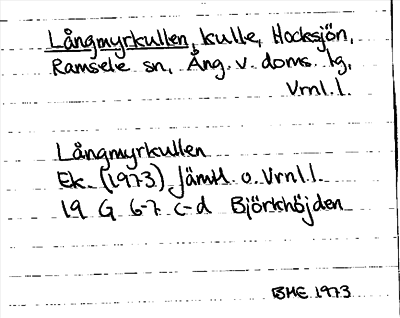 Långmyrkullen, kulle, Hocksjön,
Ramsele sn, Ång. v. doms. lg,
Vrnl. l.
Långmyrkullen
Ek. (1973) Jämtl. o. Vrnl. l.
19 G 6-7 c-d Björkhöjden
BME 1973